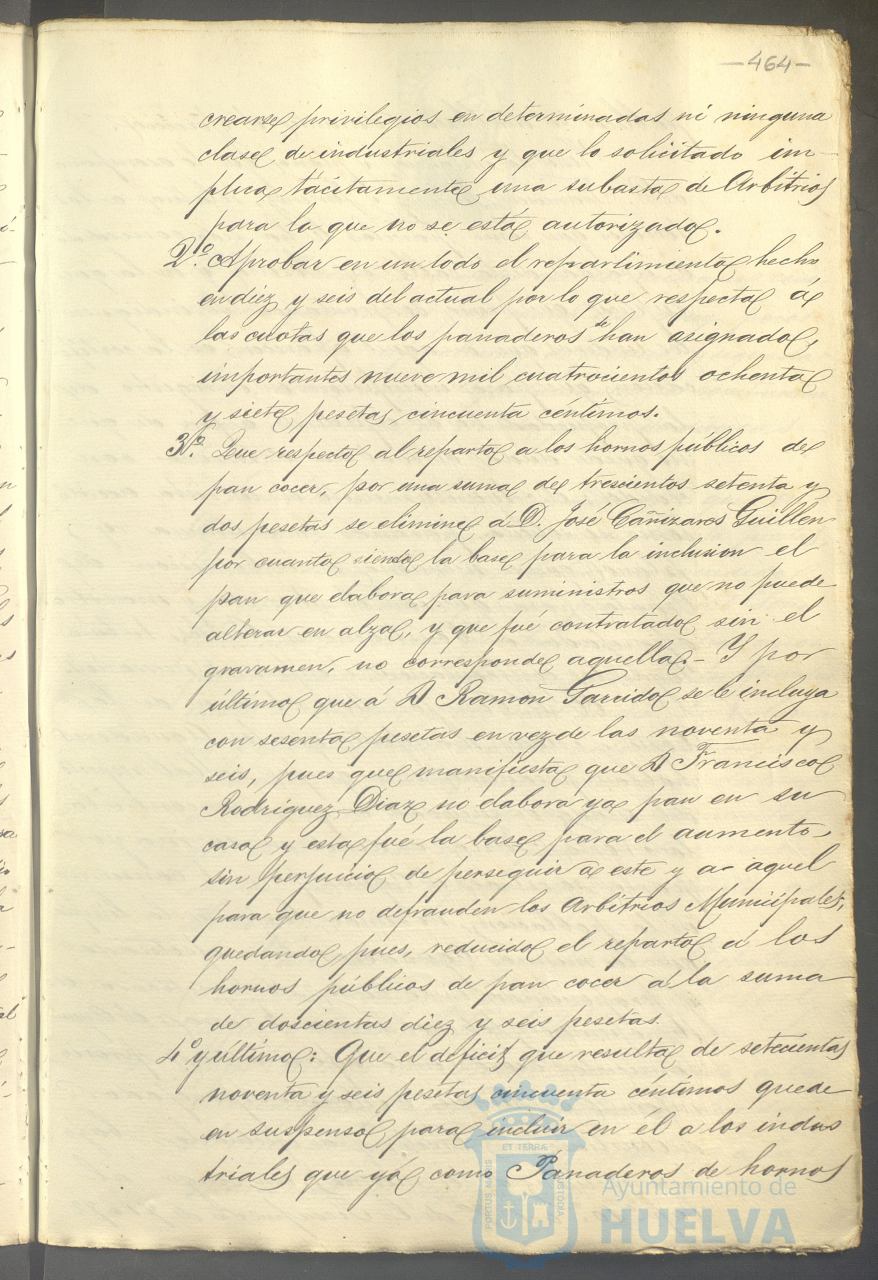 —464—
crearse privilegios en determinadas ni ninguna
clase de industriales y que lo solicitado im-
plica tácitamente una subasta de Arbitrios
para la que no se está autorizado.
2º. Aprobar en un todo el repartimiento hecho
en diez y seis del actual por lo que respecta á
las cuotas que los panaderos se han asignado,
importantes nueve mil cuatrocientos ochenta
y siete pesetas, cincuenta céntimos.
3º. Que respecto al reparto a los hornos públicos de
pan cocer, por una suma de trescientos setenta y
dos pesetas se elimine á D. José Cañizares Guillen
por cuanto siendo la base para la inclusion el
pan que elabora para suministros que no puede
alterar en alza, y que fué contratado sin el
gravamen, no corresponde aquella.- Y por
último que á D Ramon Garrido se le incluya
con sesenta pesetas en vez de las noventa y
seis, pues que manifiesta que D Francisco
Rodriguez Diaz no elabora ya pan en su
casa y esta fué la base para el aumento,
sin perjuicio de perseguir a este y a aquel
para que no defrauden los Arbitrios Municipales,
quedando, pues, reducido el reparto á los
hornos públicos de pan cocer á la suma
de doscientas diez y seis pesetas.
4º y último: Que el deficit que resulta de setecientas
noventa y seis pesetas cincuenta céntimos quede
en suspenso para incluir en él a los indus
triales que yá como Panaderos de hornos
ET TERRÆ
PORTUS MARIS
CUSTODIA
Ayuntamiento de
HUELVA